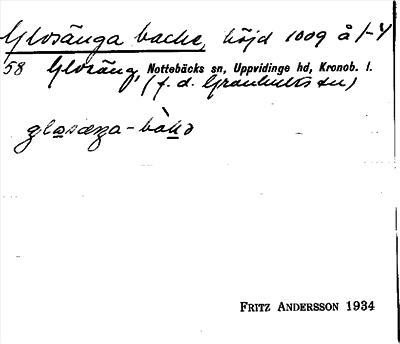 Glosänga backe, höjd 1009 å 1-4
58 Glosäng, Nottebäcks sn, Uppvidinge hd, Kronob. l.
(f. d. Granhults sn)
glosæŋa-bàkə
FRITZ ANDERSSON 1934